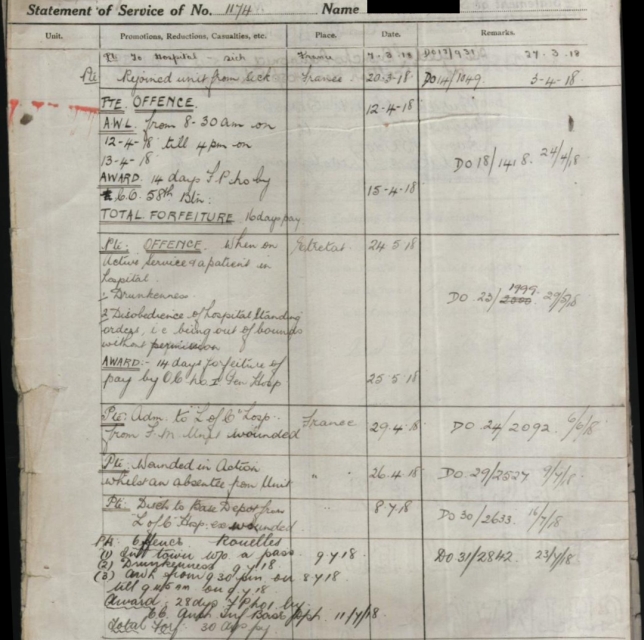 Statement of Service of No. 1174 Name
Unit. Promotions, Reductions, Casualties, etc. Place. Date. Remarks.
Pte To Hospital - sick France 7-3-18 DO13/931 27-3-18
Pte Rejoined unit from Sick France 20-3-18 DO14/1049. 3-4-18
PTE OFFENCE. 12-4-18
A.W.L. from 8-30 am on
12-4-18 till 4 pm on
13-4-18 DO 18/1418. 24/4/18
AWARD 14 days F.P. no 2 by
C.O. 58th Bln. 15-4-18
TOTAL FORFEITURE 16 days pay
Pte: OFFENCE. When on Etretat 24-5-18
Active Service & a patient in
hospital.
1 Drunkenness. DO 23/ 1999. 29/5/18
2 Disobedience of hospital standing
orders, i.e. being out of bounds
without permission
AWARD:- 14 days forfeiture of
pay by O.C. no 1 Gen Hosp 25-5-18
Pte: Adm. to L of C Hosp. France
from F.M. Unit wounded 29-4-18 DO 24/2092. 6/6/18
Pte Wounded in Action " " 26.4.18 DO 29/2527 9/7/18
whilst an absentee from Unit
Pte: Disch to Base Depot from 8-7-18
L of C Hosp. ex wounded. DO 30/2633. 16/7/18
Pte Offence Rouelles
(1) In town w/o a pass 9-7-18 DO 31/2842. 23/7/18
(2) Drunkenness 9.7.18
(3) Awl from 9.30 pm on 8-7-18
till 9.45 am on 9.7.18
Award; 28 days F P no 1 by
Aust Inf Base Dept. 11/7/18.
Total Forf 30 days pay